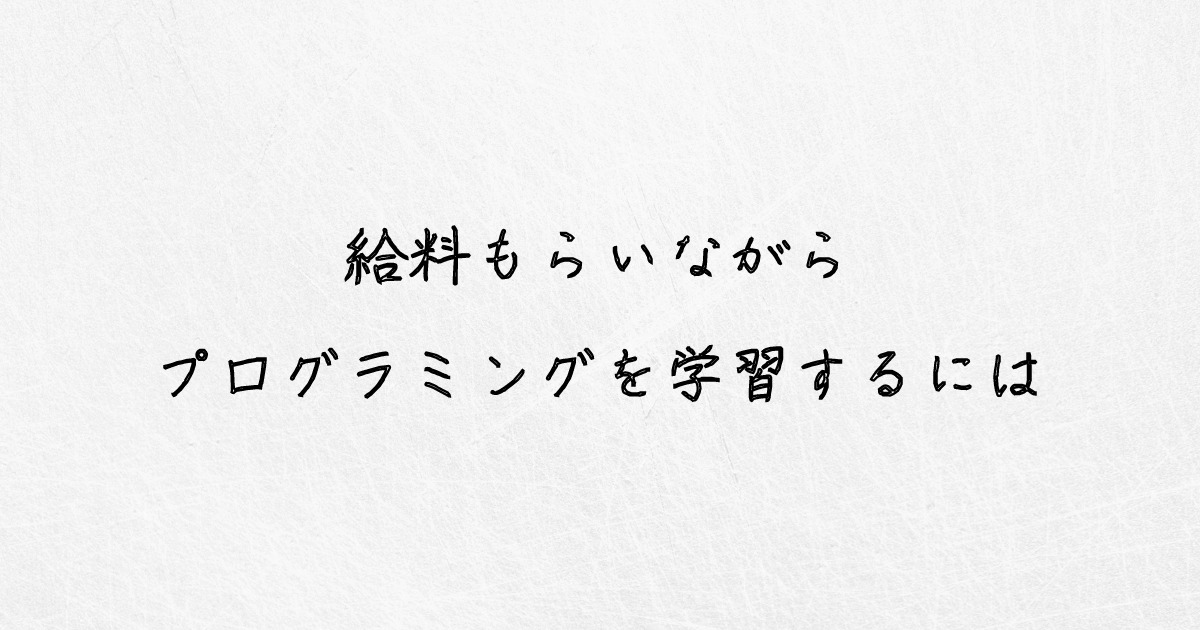 給料もらいながら
プログラミングを学習するには